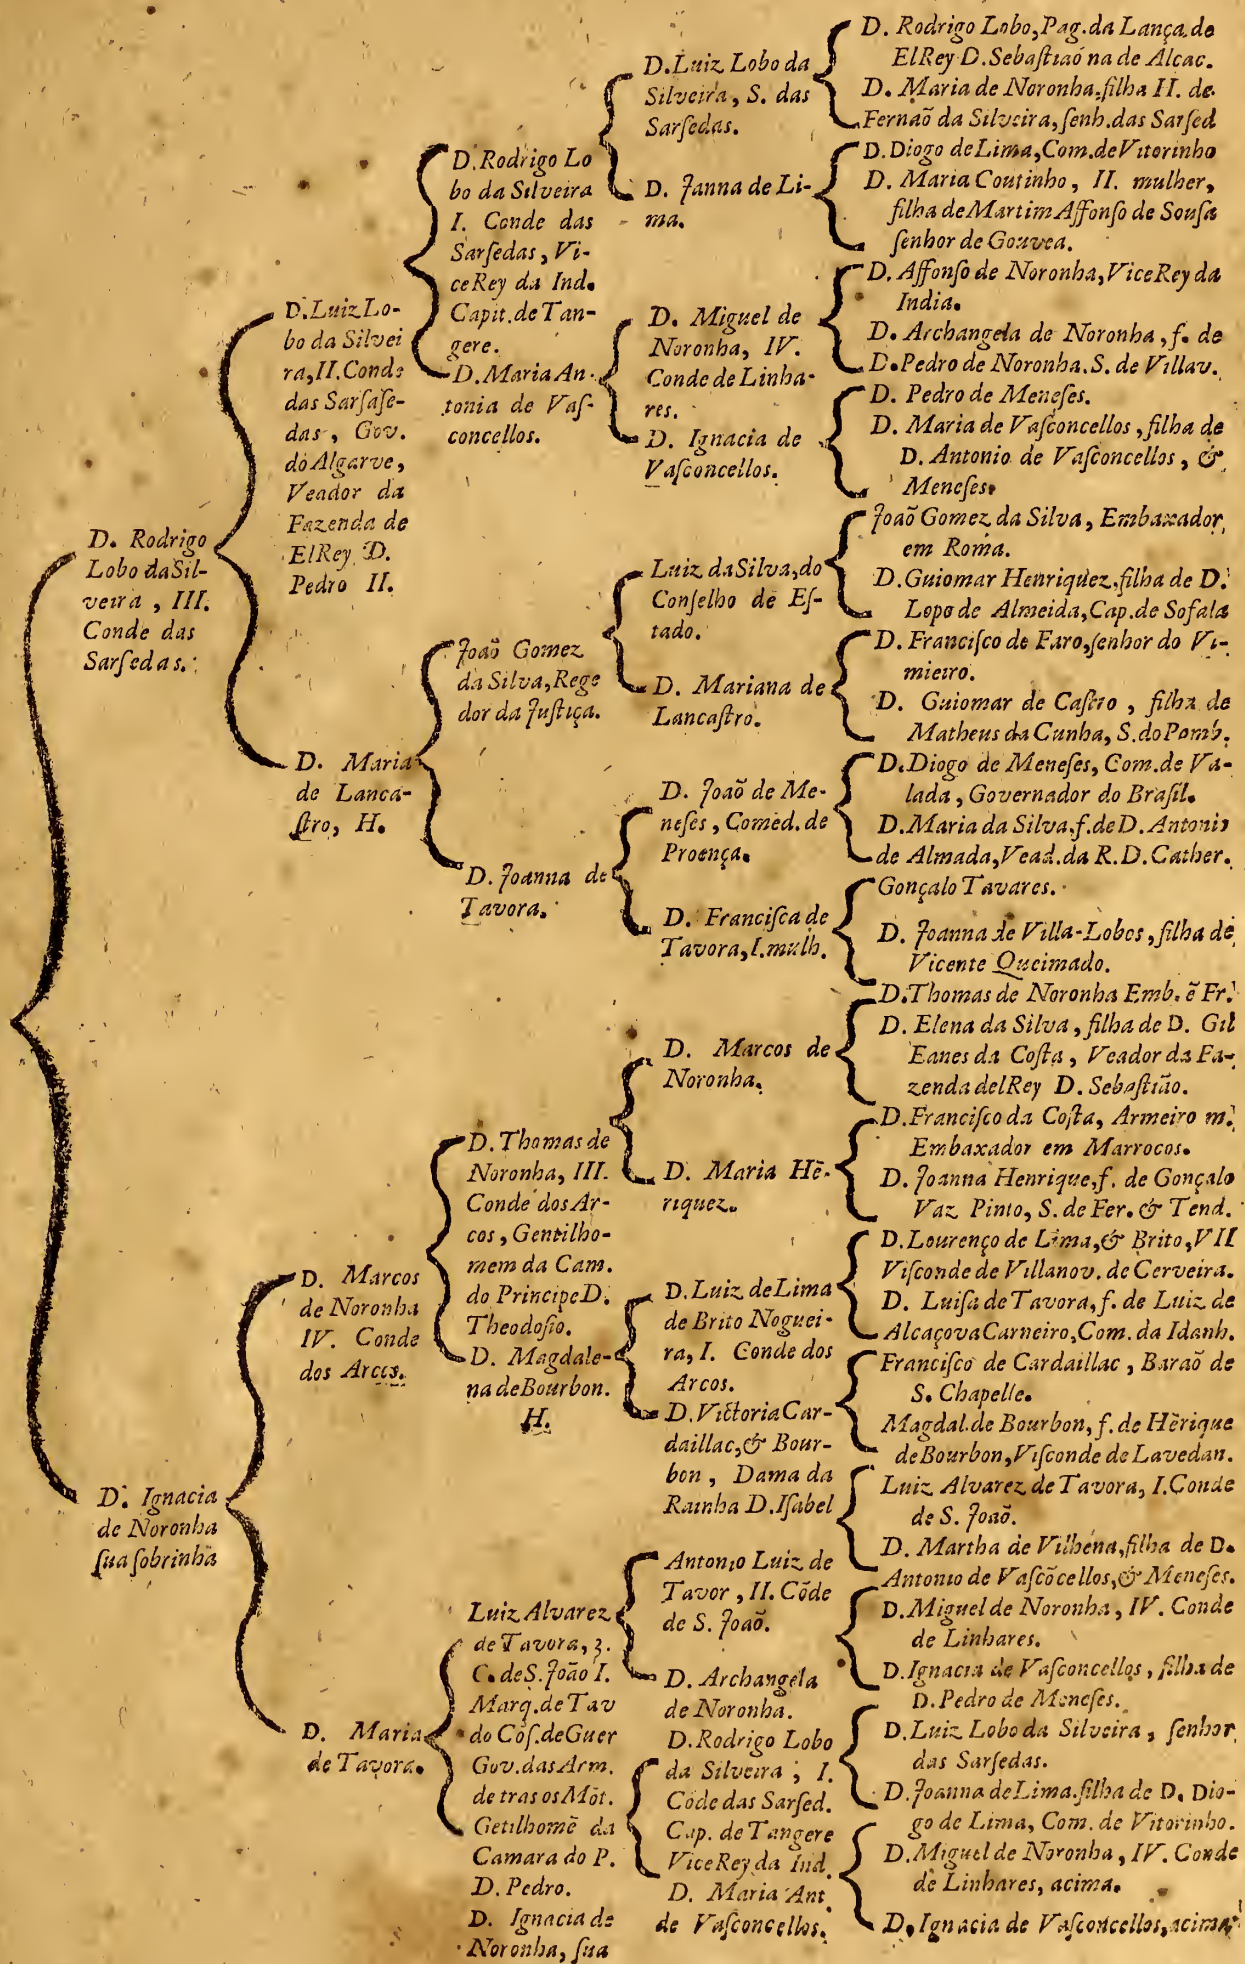 D. Rodrigo
Lobo da Sil-
veira, III.
Conde das
Sarsedas.
D. Ignacia
de Noronha
ſua ſobrinha
D. Luiz Lo-
bo da Silvei
ra, II. Conde
das Sarſaſe-
das, Gov.
do Algarve,
Veador da
Fazenda de
ElRey D.
Pedro II.
D. Maria
de Lanca-
ſtro, H.
D. Marcos
de Noronha
IV. Conde
dos Arcos.
D. Maria
de Tavora.
D. Rodrigo Lo
bo da Silveira
I. Conde das
Sarſedas, Vi-
ceRey da Ind.
Capit. de Tan-
gere.
D. Maria An-
tonia de Vaſ-
concellos.
Joaõ Gomez
da Silva, Rege
dor da Juſtiça.
D. Joanna de
Tavora.
D. Thomas de
Noronha, III.
Conde dos Ar-
cos, Gentilho-
mem da Cam.
do Principe D.
Theodoſio.
D. Magdale-
na de Bourbon.
H.
Luiz Alvarez
de Tavora, 3.
C. de S. João I.
Marq. de Tav
do Cõſ. de Guer
Gov. das Arm.
de tras os Mõt.
Getilhomẽ da
Camara do P.
D. Pedro.
D. Ignacia de
Noronha, ſua
D. Luiz Lobo da
Silveira, S. das
Sarſedas.
D. Janna de Li-
ma.
D. Miguel de
Noronha, IV.
Conde de Linha-
res.
D. Ignacia de
Vaſconcellos.
Luiz da Silva, do
Conſelho de Eſ-
tado.
D. Mariana de
Lancaſtro.
D. Joaõ de Me-
neſes, Comed. de
Proença.
D. Franciſca de
Tavora, I. mulh.
D. Marcos de
Noronha.
D. Maria Hẽ-
riquez.
D. Luiz de Lima
de Brito Noguei-
ra, I. Conde dos
Arcos.
D. Victoria Car-
daillac, & Bour-
bon, Dama da
Rainha D. Iſabel
Antonio Luiz de
Tavor, II. Cõde
de S. Joaõ.
D. Archangela
de Noronha.
D. Rodrigo Lobo
da Silveira, I.
Cõde das Sarſed.
Cap. de Tangere
ViceRey da Ind.
D. Maria Ant
de Vaſconcellos.
D. Rodrigo Lobo, Pag. da Lança de
ElRey D. Sebaſtiaõ na de Alcac.
D. Maria de Noronha, filha II. de
Fernaõ da Silveira, ſenh. das Sarſed
D. Diogo de Lima, Com. de Vitorinho
D. Maria Coutinho, II. mulher,
filha de Martim Affonſo de Souſa
ſenhor de Gouvea.
D. Affonſo de Noronha, ViceRey da
India.
D. Archangela de Noronha, f. de
D. Pedro de Noronha. S. de Villav.
D. Pedro de Meneſes.
D. Maria de Vaſconcellos, filha de
D. Antonio de Vaſconcellos, &
Meneſes.
Joaõ Gomez da Silva, Embaxador
em Roma.
D. Guiomar Henriquez, filha de D.
Lopo de Almeida, Cap. de Sofala
D. Franciſco de Faro, ſenhor do Vi-
mieiro.
D. Guiomar de Caſtro, filha de
Matheus da Cunha, S. do Pomb.
D. Diogo de Meneſes, Com. de Va-
lada, Governador do Braſil.
D. Maria da Silva, f. de D. Antonio
de Almada, Vead. da R. D. Cather.
Gonçalo Tavares.
D. Joanna de Villa-Lobos, filha de
Vicente Queimado.
D. Thomas de Noronha Emb. ẽ Fr.
D. Elena da Silva, filha de D. Gil
Eanes da Coſta, Veador da Fa-
zenda delRey D. Sebaſtião.
D. Franciſco da Coſta, Armeiro m.
Embaxador em Marrocos.
D. Joanna Henrique, f. de Gonçalo
Vaz Pinto, S. de Fer. & Tend.
D. Lourenço de Lima, & Brito, VII
Viſconde de Villanov. de Cerveira.
D. Luiſa de Tavora, f. de Luiz de
Alcaçova Carneiro, Com. da Idanh.
Franciſco de Cardaillac, Baraõ de
S. Chapelle.
Magdal. de Bourbon, f. de Hẽrique
de Bourbon, Viſconde de Lavedan.
Luiz Alvarez de Tavora, I. Conde
de S. Joaõ.
D. Martha de Vilhena, filha de D.
Antonio de Vaſcõcellos, & Meneſes.
D. Miguel de Noronha, IV. Conde
de Linhares.
D. Ignacia de Vaſconcellos, filha de
D. Pedro de Meneſes.
D. Luiz Lobo da Silveira, ſenhor
das Sarſedas.
D. Joanna de Lima. filha de D. Dio-
go de Lima, Com. de Vitorinho.
D. Miguel de Noronha, IV. Conde
de Linhares, acima.
D. Ignacia de Vaſconcellos, acima